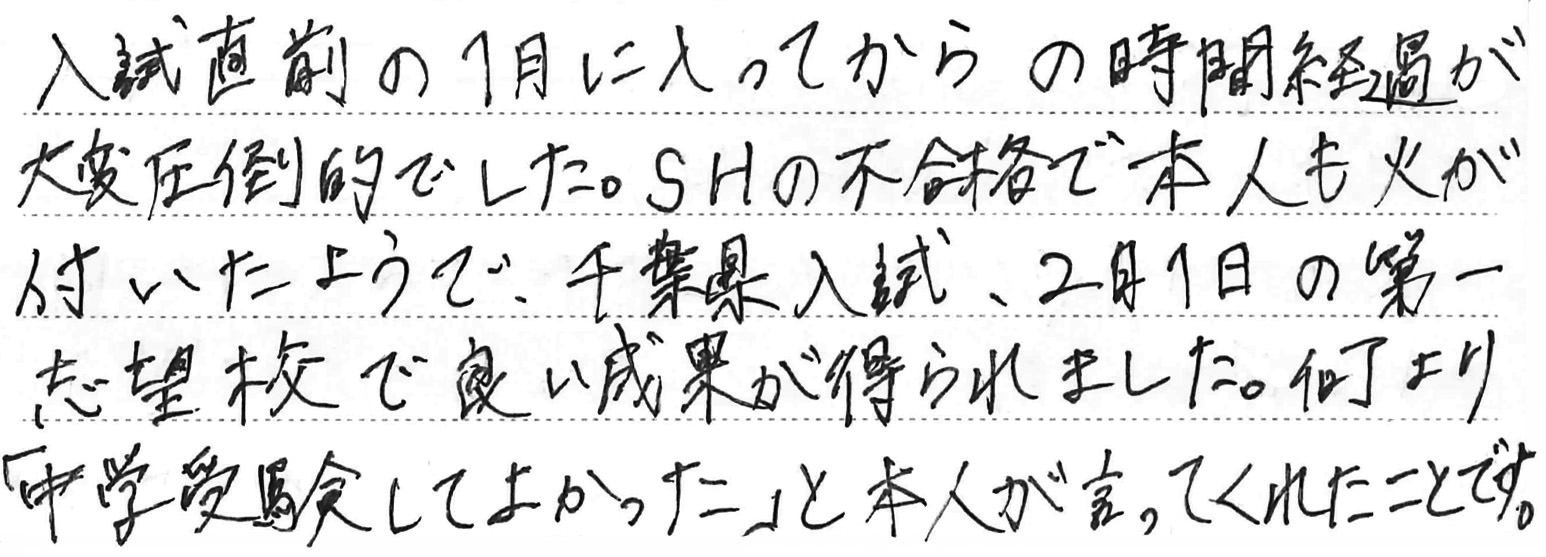 入試直前の1月に入ってからの時間経過が
大変圧倒的でした。SHの不合格で本人も火が
付いたようで、千葉県入試、2月1日の第一
志望校で良い成果が得られました。何より
「中学受験してよかった」と本人が言ってくれたことです。